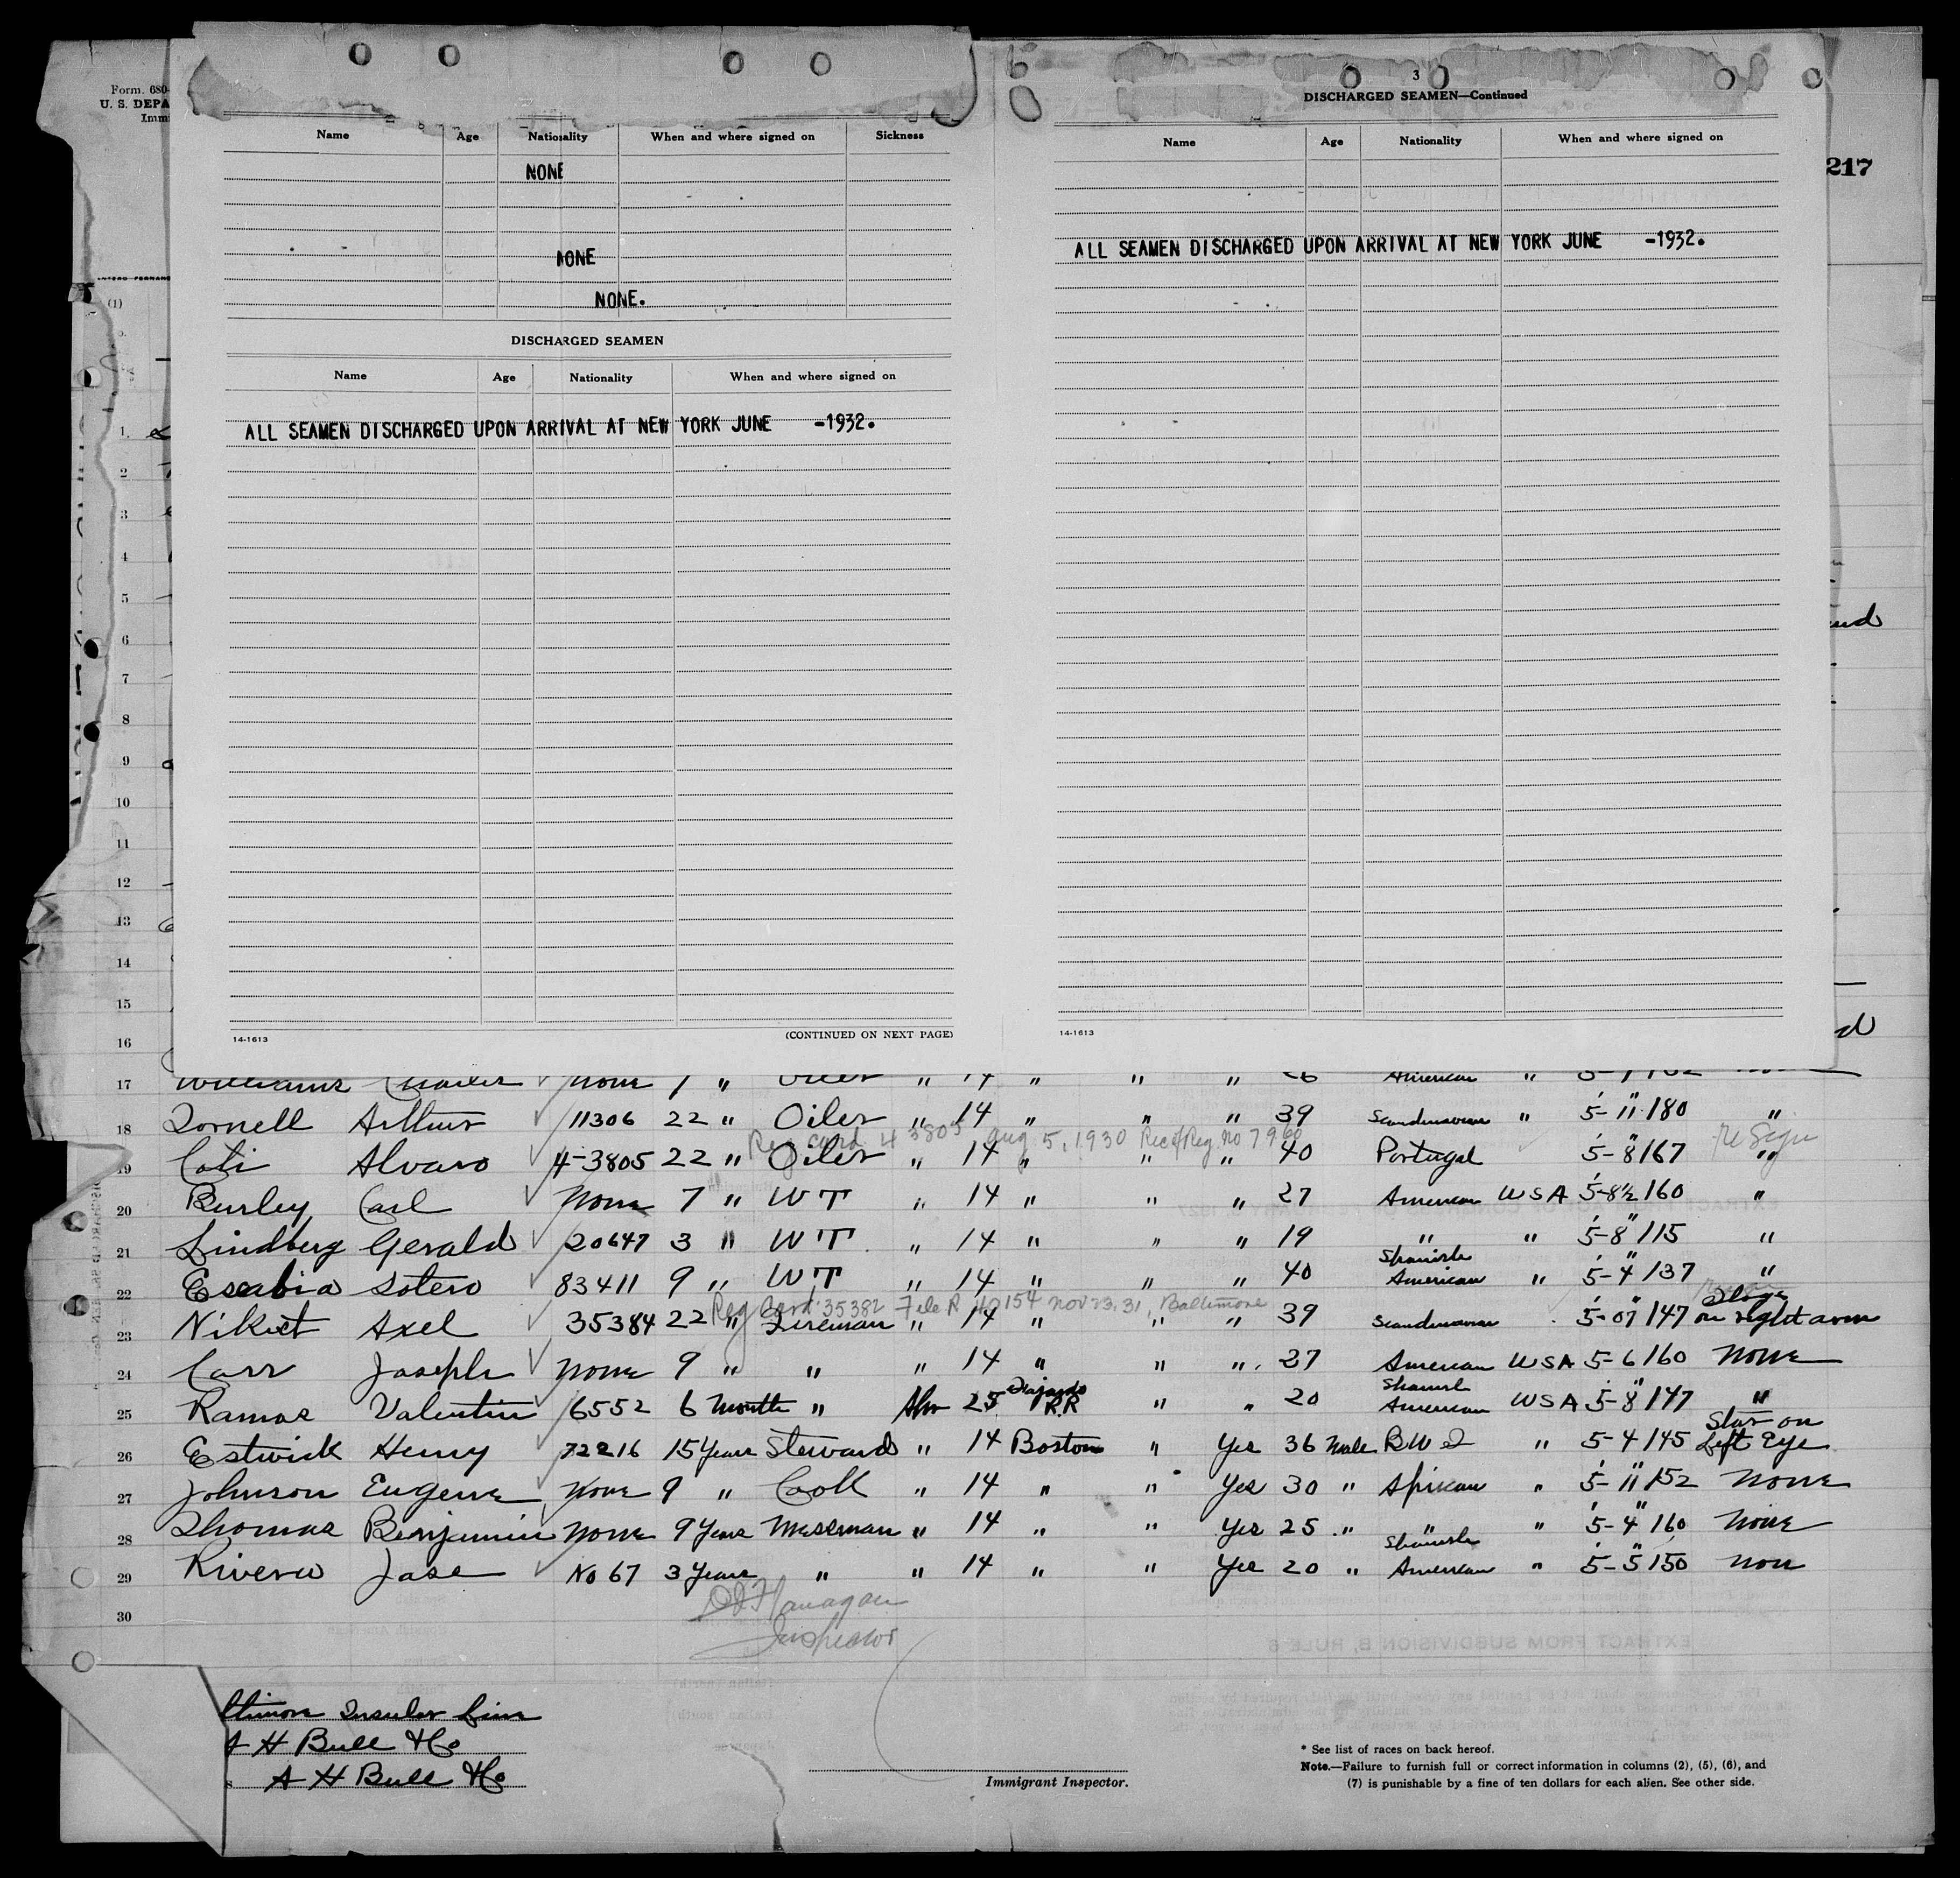 Form. 680-
U. S. DEPA
Imm
3
DISCHARGED SEAMEN—Continued
217
Name Age Nationality When and where signed on Sickness
NONE
NONE
NONE.
DISCHARGED SEAMEN
Name Age Nationality When and where signed on
ALL SEAMEN DISCHARGED UPON ARRIVAL AT NEW YORK JUNE -1932.
(CONTINUED ON NEXT PAGE)
14-1613
Name Age Nationality When and where signed on
ALL SEAMEN DISCHARGED UPON ARRIVAL AT NEW YORK JUNE -1932.
14-1613
(1)
1
2
3
4
5
6
7
8
9
10
11
12
13
14
15
16
17 Williams Charles None 7 " Oiler " 14 " " " 26 American "
18 Arthur 11306 22 " Oiler " 14 " " " 39 Scandinavian " 5-11 180 "
Reg card 4 3805 Aug 5, 1930 Rec of Reg no 7960
19 Coti Alvaro 4-3805 22 " Oiler " 14 " " " 40 Portugal 5-8 167 "
20 Burley Carl None 7 " WT " 14 " " " 27 American USA 5-8½ 160 "
21 Lindberg Gerald 20647 3 " WT " 14 " " " 19 " " 5-8 115 "
22 Escabia Sotero 83411 9 " WT " 14 " " " 40 Spanish American " 5-4 137 "
Reg Card 35382 File R 40154 Nov 23, 31, Baltimore
23 Axel 35384 22 " Fireman " 14 " " " 39 Scandinavian 5-07 147 on right arm
24 Carr Joseph None 9 " " " 14 " " " 27 American USA 5-6 160 None
25 Ramos Valentin 6552 6 Month " 25 Fajardo P.R " " 20 Spanish American USA 5-8 147 "
26 Estwick Henry 72216 15 Years Steward " 14 Boston " Yes 36 Male B W I " 5-4 145 Star on Left Eye
27 Johnson Eugene None 9 " Cook " 14 " " Yes 30 " African " 5-11 152 None
28 Thomas Benjamin None 9 Years Messman " 14 " " Yes 25 " " " 5-4 160 None
29 Rivera Jose No 67 3 Years " " 14 " " Yes 20 " Spanish American " 5-5 150 Non
30
Flanagan
Inspector
ltimore Insular Line
A H Bull & Co
A H Bull & Co
Immigrant Inspector.
* See list of races on back hereof.
Note.—Failure to furnish full or correct information in columns (2), (5), (6), and
(7) is punishable by a fine of ten dollars for each alien. See other side.